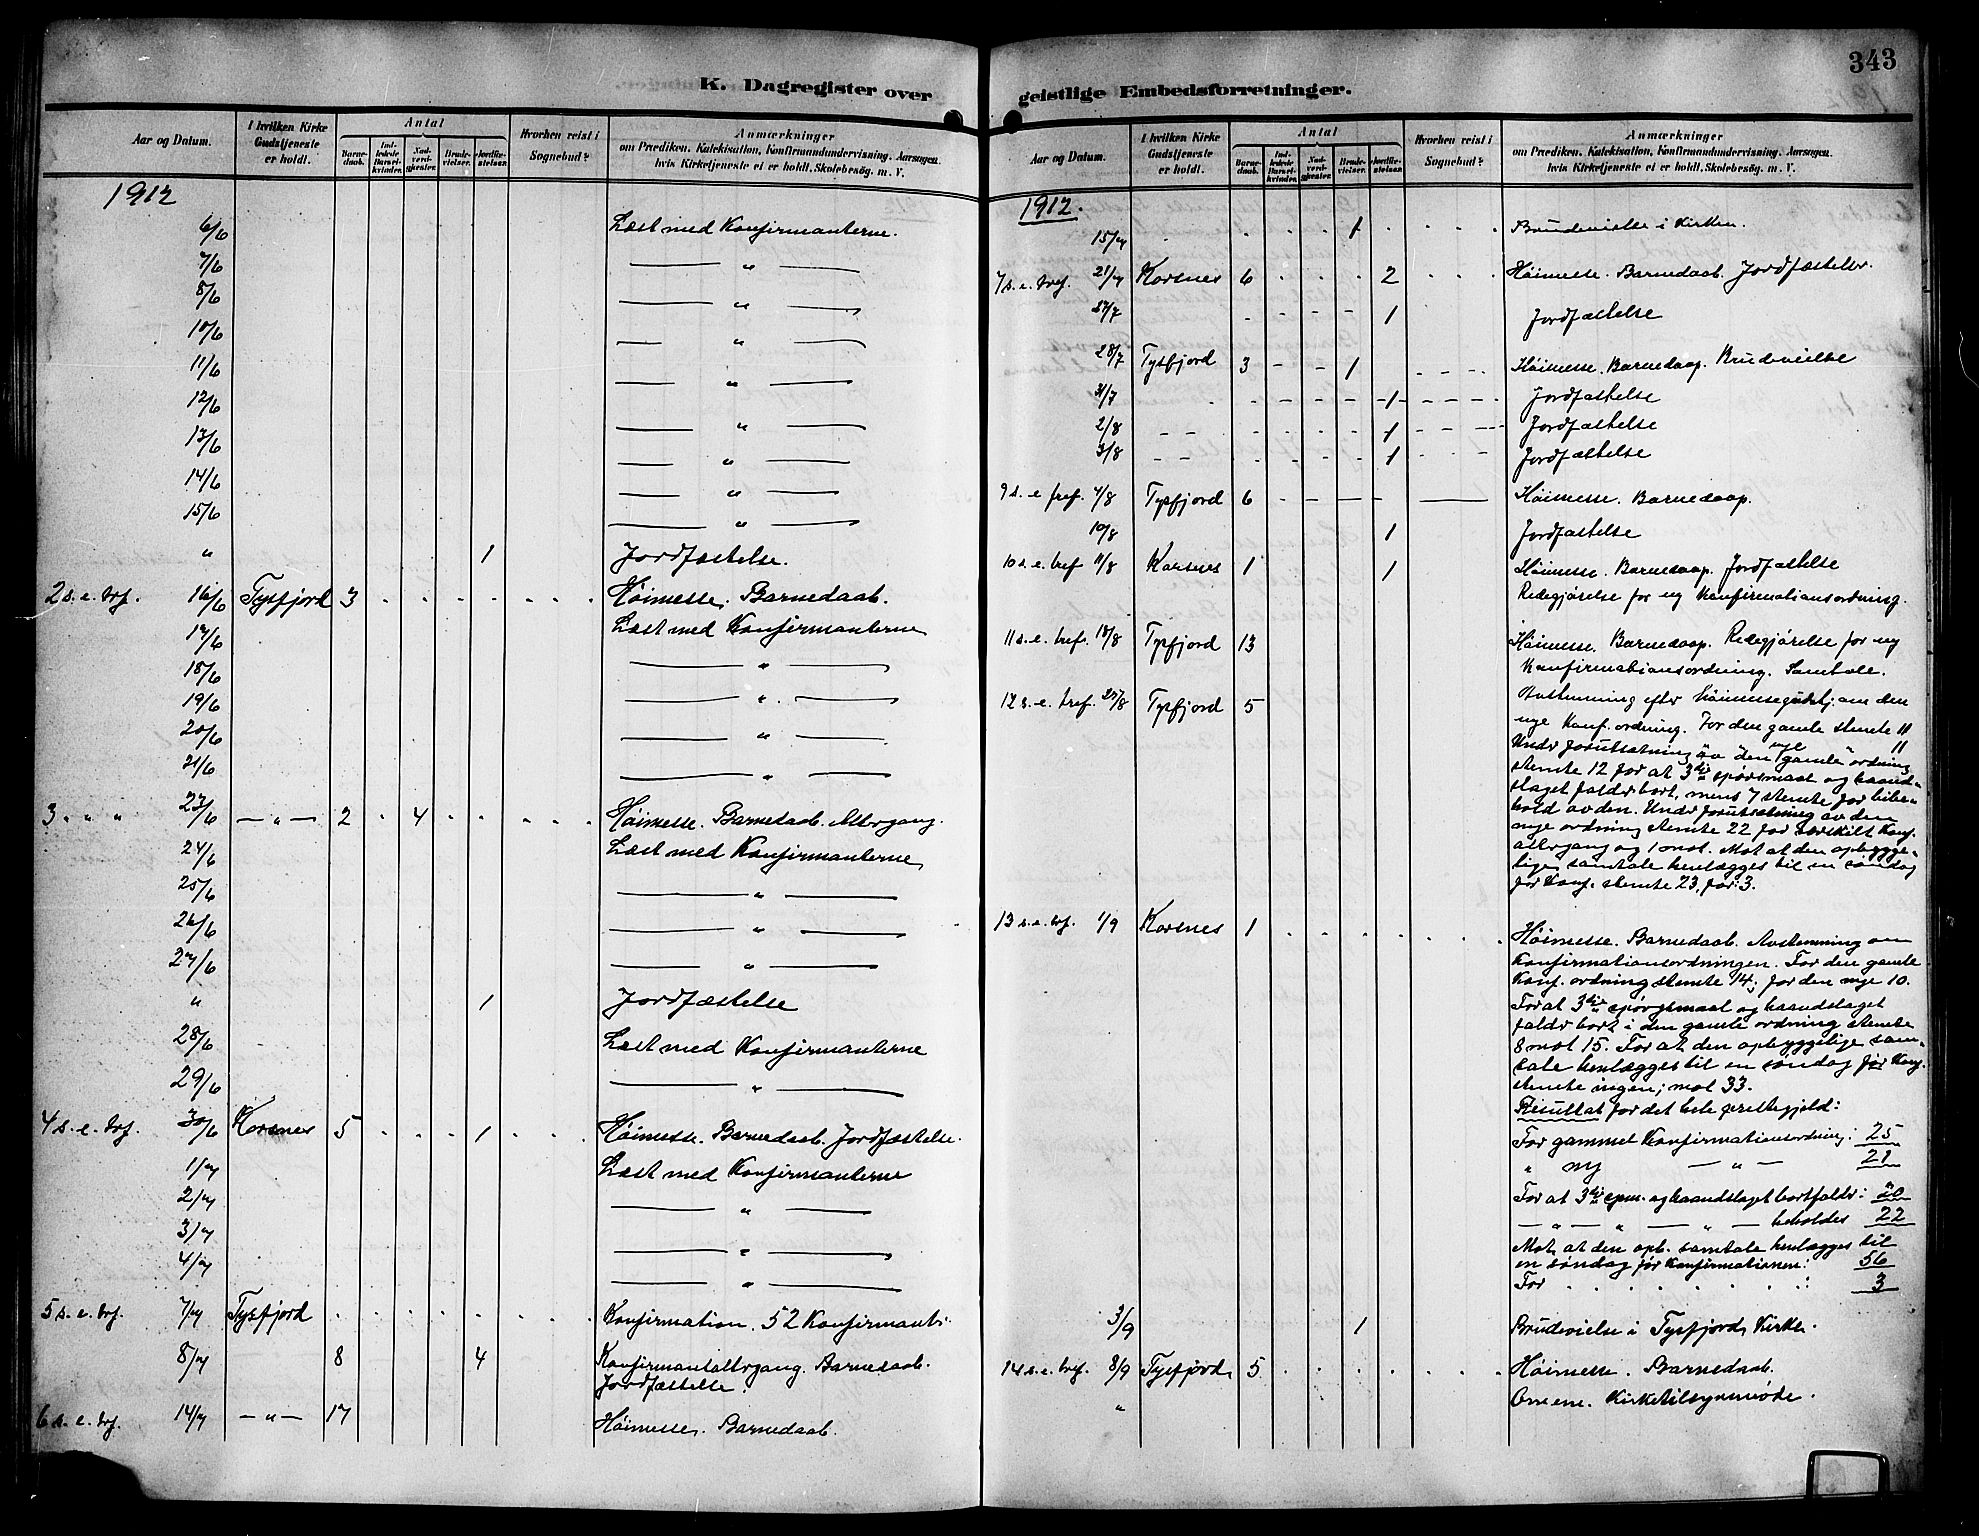 343
K. Dagregister over geistlige Embedsforretninger.
Aar og Datum. I hvilken Kirke Gudstjeneste er holdt. Antal Barnedaab. Indledede Barselkvinder. Nadverdgjester. Brudevielser. Jordfæstelser. Hvorhen reist i Sognebud? Anmærkninger om Prædiken, Katekisation, Konfirmandundervisning, Aarsagen, hvis Kirketjeneste ei er holdt, Skolebesøg, m. V.
1912
6/6 Læst med Konfirmanterne.
7/6 — " —
8/6 — " —
10/6 — " —
11/6 — " —
12/6 — " —
13/6 — " —
14/6 — " —
15/6 — " —
" 1 Jordfæstelse.
2 s. e. trf. 16/6 Tysfjord 3 Høimesse. Barnedaab.
17/6 Læst med Konfirmanterne
18/6 — " —
19/6 — " —
20/6 — " —
21/6 — " —
3 " " 23/6 — " — 2 4 Høimesse. Barnedaab. Altergang.
24/6 Læst med Konfirmanterne
25/6 — " —
26/6 — " —
27/6 — " —
" 1 Jordfæstelse
28/6 Læst med Konfirmanterne
29/6 — " —
4 s. e. trf. 30/6 Korsnes 5 1 Høimesse. Barnedaab. Jordfæstelse.
1/7 Læst med Konfirmanterne
2/7 — " —
3/7 — " —
4/7 — " —
5 s. e. trf. 7/7 Tysfjord Konfirmation. 52 Konfirmant.
8/7 8 4 Konfirmantaltergang. Barnedaab.
Jordfæstelse.
6 s. e. trf. 14/7 — " — 17 Høimesse. Barnedaab.
Aar og Datum. I hvilken Kirke Gudstjeneste er holdt. Antal Barnedaab. Indledede Barselkvinder. Nadverdgjester. Brudevielser. Jordfæstelser. Hvorhen reist i Sognebud? Anmærkninger om Prædiken, Katekisation, Konfirmandundervisning, Aarsagen, hvis Kirketjeneste ei er holdt, Skolebesøg, m. V.
1912.
15/7 1 Brudevielse i Kirken.
7 s. e. tref. 21/7 Korsnes 6 2 Høimesse. Barnedaab. Jordfæstelser.
27/7 1 Jordfæstelse
28/7 Tysfjord 3 1 Høimesse. Barnedaap. Brudevielse
31/7 1 Jordfæstelse
2/8 1 Jordfæstelse
3/8 1 Jordfæstelse
9 s. e. tref. 4/8 Tysfjord 6 Høimesse. Barnedaap.
10/8 1 Jordfæstelse
10 s. e. tref 11/8 Korsnes 1 1 Høimesse. Barnedaap. Jordfæstelse
Redegjørelse for ny Konfirmationsordning.
11 s. e. tref. 18/8 Tysfjord 13 Høimesse. Barnedaap. Redegjørelse for ny
Konfirmationsordning. Samtale.
12 s. e. tref. 25/8 Tysfjord 5 Avstemning efter høimessegudstj. om den
nye Konf. ordning. For den gamle stemte 11
" " " nye " 11
Under forutsætning av den gamle ordning
stemte 12 for at 3die spørsmaal og haand-
slaget falder bort, mens 7 stemte for bibe-
hold av den. Under forutsætning av den
nye ordning stemte 22 for særskilt Konf.
altergang og 1 mot. Mot at den opbygge-
lige samtale henlægges til en søndag
før Konf. stemte 23, for: 3.
13 s. e. trf. 1/9 Korsnes 1 Høimesse. Barnedaab. Avstemning om
Konfirmationsordningen. For den gamle
Konf. ordning stemte 14; for den nye 10.
For at 3die spørgsmaal og haandslaget
falder bort i den gamle ordning stemte
8 mot 15. For at den opbyggelige sam-
tale henlægges til en søndag før Konf.
stemte ingen; mot 33.
Resultat for det hele prestegjeld:
For gammel Konfirmationsordning: 25
" ny — " — 21
For at 3die spm. og haandslaget bortfalder: 20
— " — " — " — beholdes 22
Mot at den opb. samtale henlægges til
en søndag før Konfirmationen: 56
For : 3
3/9 1 Brudevielse i Tysfjord Kirke.
14 s. e. tref. 8/9 Tysfjord 5 Høimesse. Barnedaab.
" Kirketilsynsmøde.